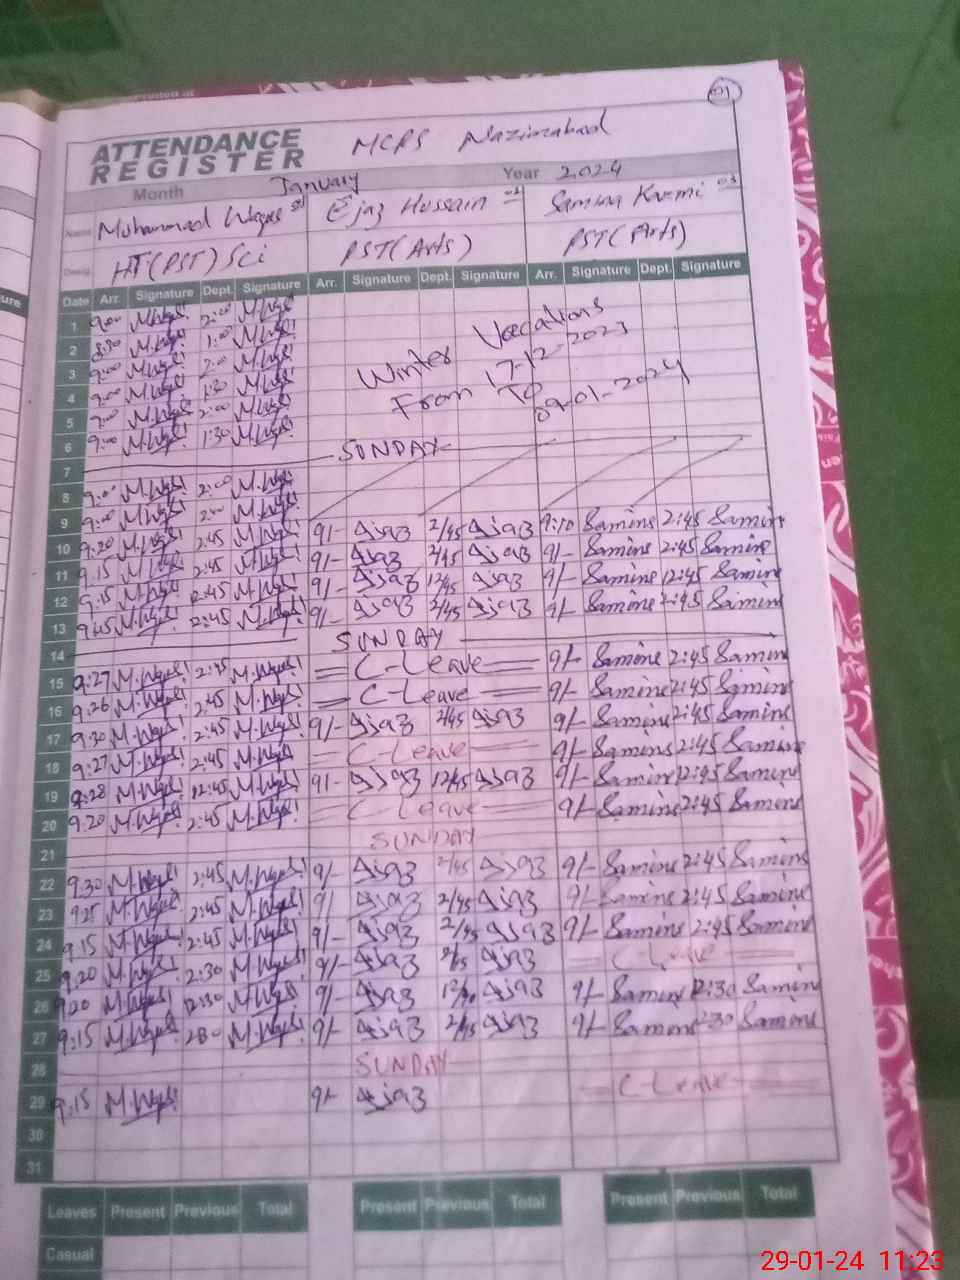 01
ATTENDANCE REGISTER MCPS Nazimabad
Month January Year 2024
Name Muhammad Waqas 01 Ejaz Hussain 02 Samina Kazmi 03
Desig. HT(PST) Sci PST(Arts) PST(Arts)
Date Arr. Signature Dept. Signature Arr. Signature Dept. Signature Arr. Signature Dept. Signature
1 9:00 M.Waqas 2:00 M.Waqas
2 8:30 M.Waqas 1:00 M.Waqas
3 9:00 M.Waqas 2:00 M.Waqas
4 9:00 M.Waqas 1:30 M.Waqas
5 9:00 M.Waqas 2:00 M.Waqas
6 9:00 M.Waqas 1:30 M.Waqas
Winter Veecations
From 17-12-2023
To
09-01-2024
7 SUNDAY
8 9:00 M.Waqas 2:00 M.Waqas
9 9:00 M.Waqas 2:00 M.Waqas
10 9:20 M.Waqas 2:45 M.Waqas 9/- Aijaz 2/45 Aijaz 9:10 Samina 2:45 Samina
11 9:15 M.Waqas 2:45 M.Waqas 9/- Aijaz 2/45 Aijaz 9/- Samina 2:45 Samina
12 9:15 M.Waqas 12:45 M.Waqas 9/- Aijaz 12/45 Aijaz 9/- Samina 12:45 Samina
13 9:15 M.Waqas 2:45 M.Waqas 9/- Aijaz 2/45 Aijaz 9/- Samina 2:45 Samina
14 SUNDAY
15 9:27 M.Waqas 2:45 M.Waqas C-Leave 9/- Samina 2:45 Samina
16 9:26 M.Waqas 2:45 M.Waqas C-Leave 9/- Samina 2:45 Samina
17 9:30 M.Waqas 2:45 M.Waqas 9/- Aijaz 2/45 Aijaz 9/- Samina 2:45 Samina
18 9:27 M.Waqas 2:45 M.Waqas C-Leave 9/- Samina 2:45 Samina
19 9:28 M.Waqas 12:45 M.Waqas 9/- Aijaz 12/45 Aijaz 9/- Samina 12:45 Samina
20 9:20 M.Waqas 2:45 M.Waqas C Leave 9/- Samina 2:45 Samina
21 SUNDAY
22 9:30 M.Waqas 2:45 M.Waqas 9/- Aijaz 2/45 Aijaz 9/- Samina 2:45 Samina
23 9:25 M.Waqas 2:45 M.Waqas 9/ Aijaz 2/45 Aijaz 9/- Samina 2:45 Samina
24 9:15 M.Waqas 2:45 M.Waqas 9/- Aijaz 2/45 Aijaz 9/- Samina 2:45 Samina
25 9:20 M.Waqas 2:30 M.Waqas 9/- Aijaz Aijaz C Leave
26 9:20 M.Waqas 12:30 M.Waqas 9/- Aijaz Aijaz 9/- Samina 12:30 Samina
27 9:15 M.Waqas 2:30 M.Waqas 9/- Aijaz 2/45 Aijaz 9/- Samina 2:30 Samina
28 SUNDAY
29 9:15 M.Waqas 9/- Aijaz C-Leave
30
31
Leaves Present Previous Total Present Previous Total Present Previous Total
Casual
29-01-24 11:23